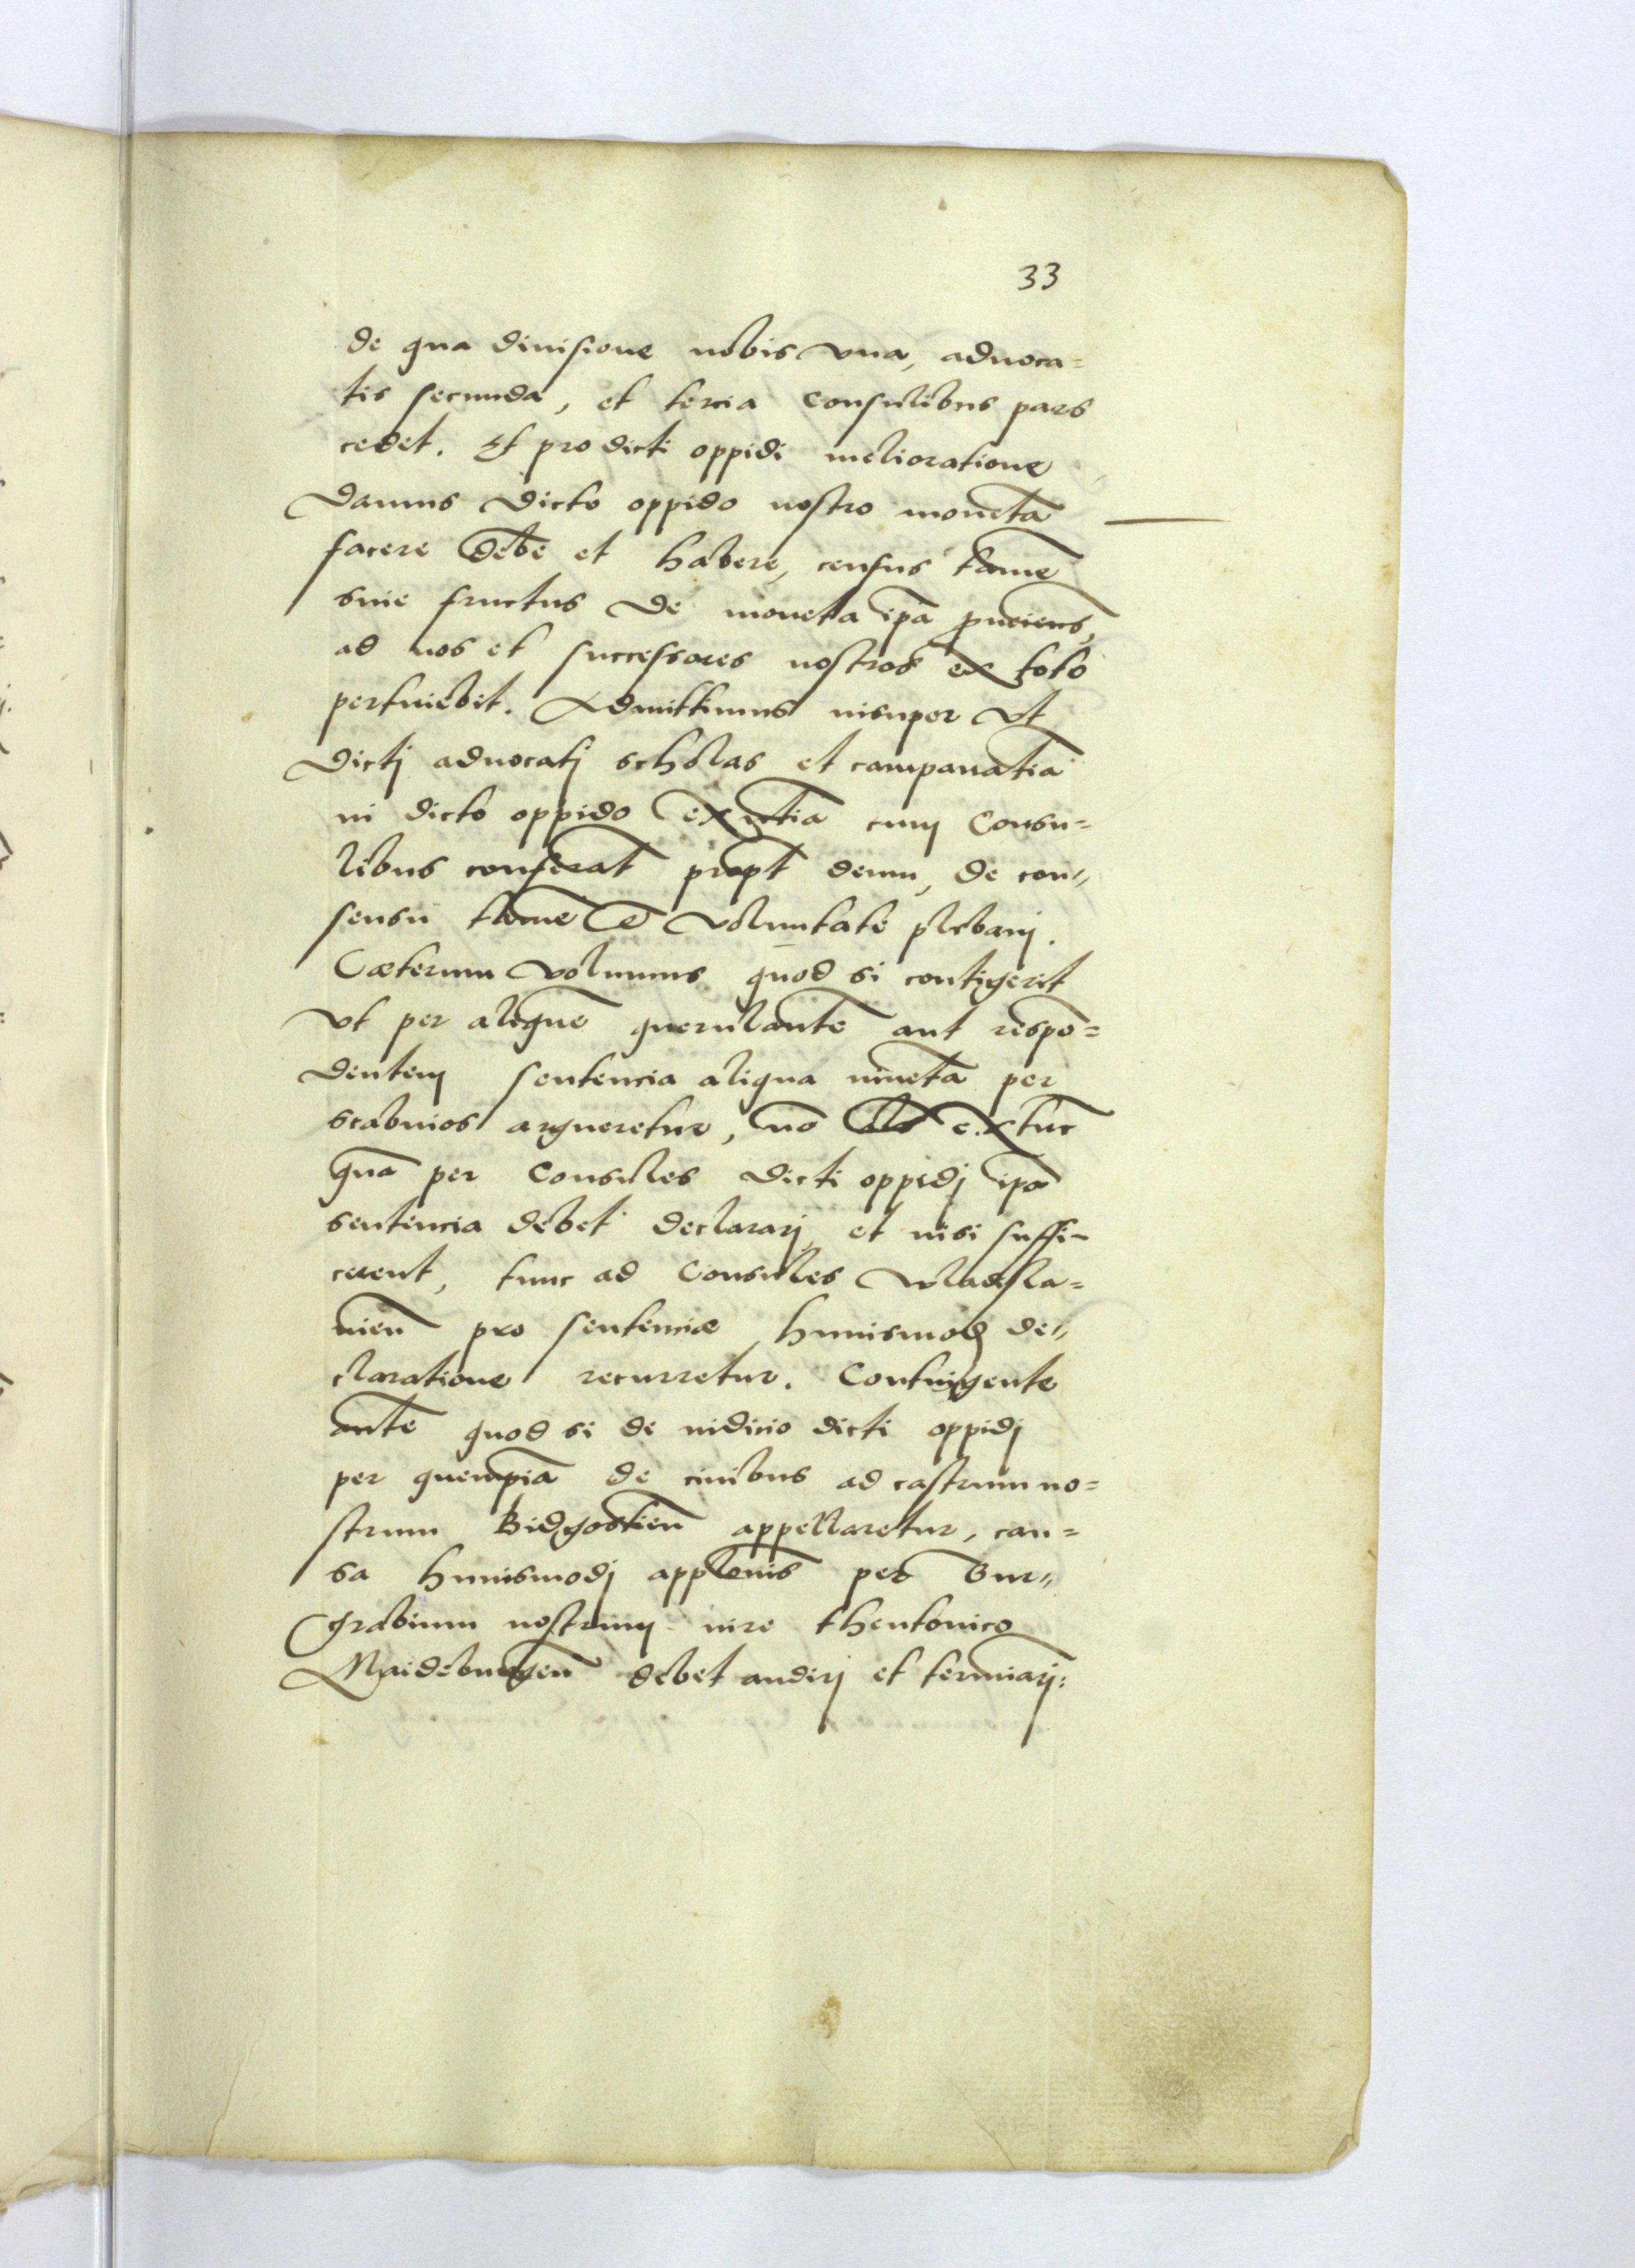 33
de qua diuisione nobis vna, aduoca=
tis secunda, et tercia Consulibus pars
cedet. Et pro dicti oppidi melioratione
damus dicto oppido nostro monetā
facere debē et habere, census tamē
siue fructus de moneta ipā proueiens,
ad nos et successores nostros ex toto
pertinebit. Admittimus insuper vt
dictj aduocatj scholas et campanatiā
in dicto oppido cum Consu=
libus conferāt propt deum, de con=
sensu tamē et voluntate plebanj.
Cæterum volumus quod si contigerit
vt per aliquē querulantē aut respō=
dentem sentencia aliqua inuētā per
scabinos argueretur, nō extūc
quā per Consules dicti oppidj ipā
sentencia debet declararj, et nisi suffi=
cerent, tunc ad Consules Wladisla=
uien̄ pro sentenciæ huiusmodj de=
claratione recurretur. Contingente
autē quod si de iudicio dicti oppidj
per quempiā de ciuibus ad castrum no=
strum Bidgostien̄ appellaretur, cau=
sa huiusmodj applōnis per Bur=
grabium nostrum iure theutonico
Maideburgen̄ debet audirj et termīarj: